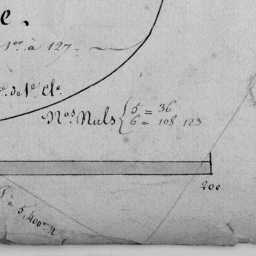 e.
1er. à 127.
de 1e. cle.
Nos. Nuls { 5 = 36
6 = 108. 123
200
5,400